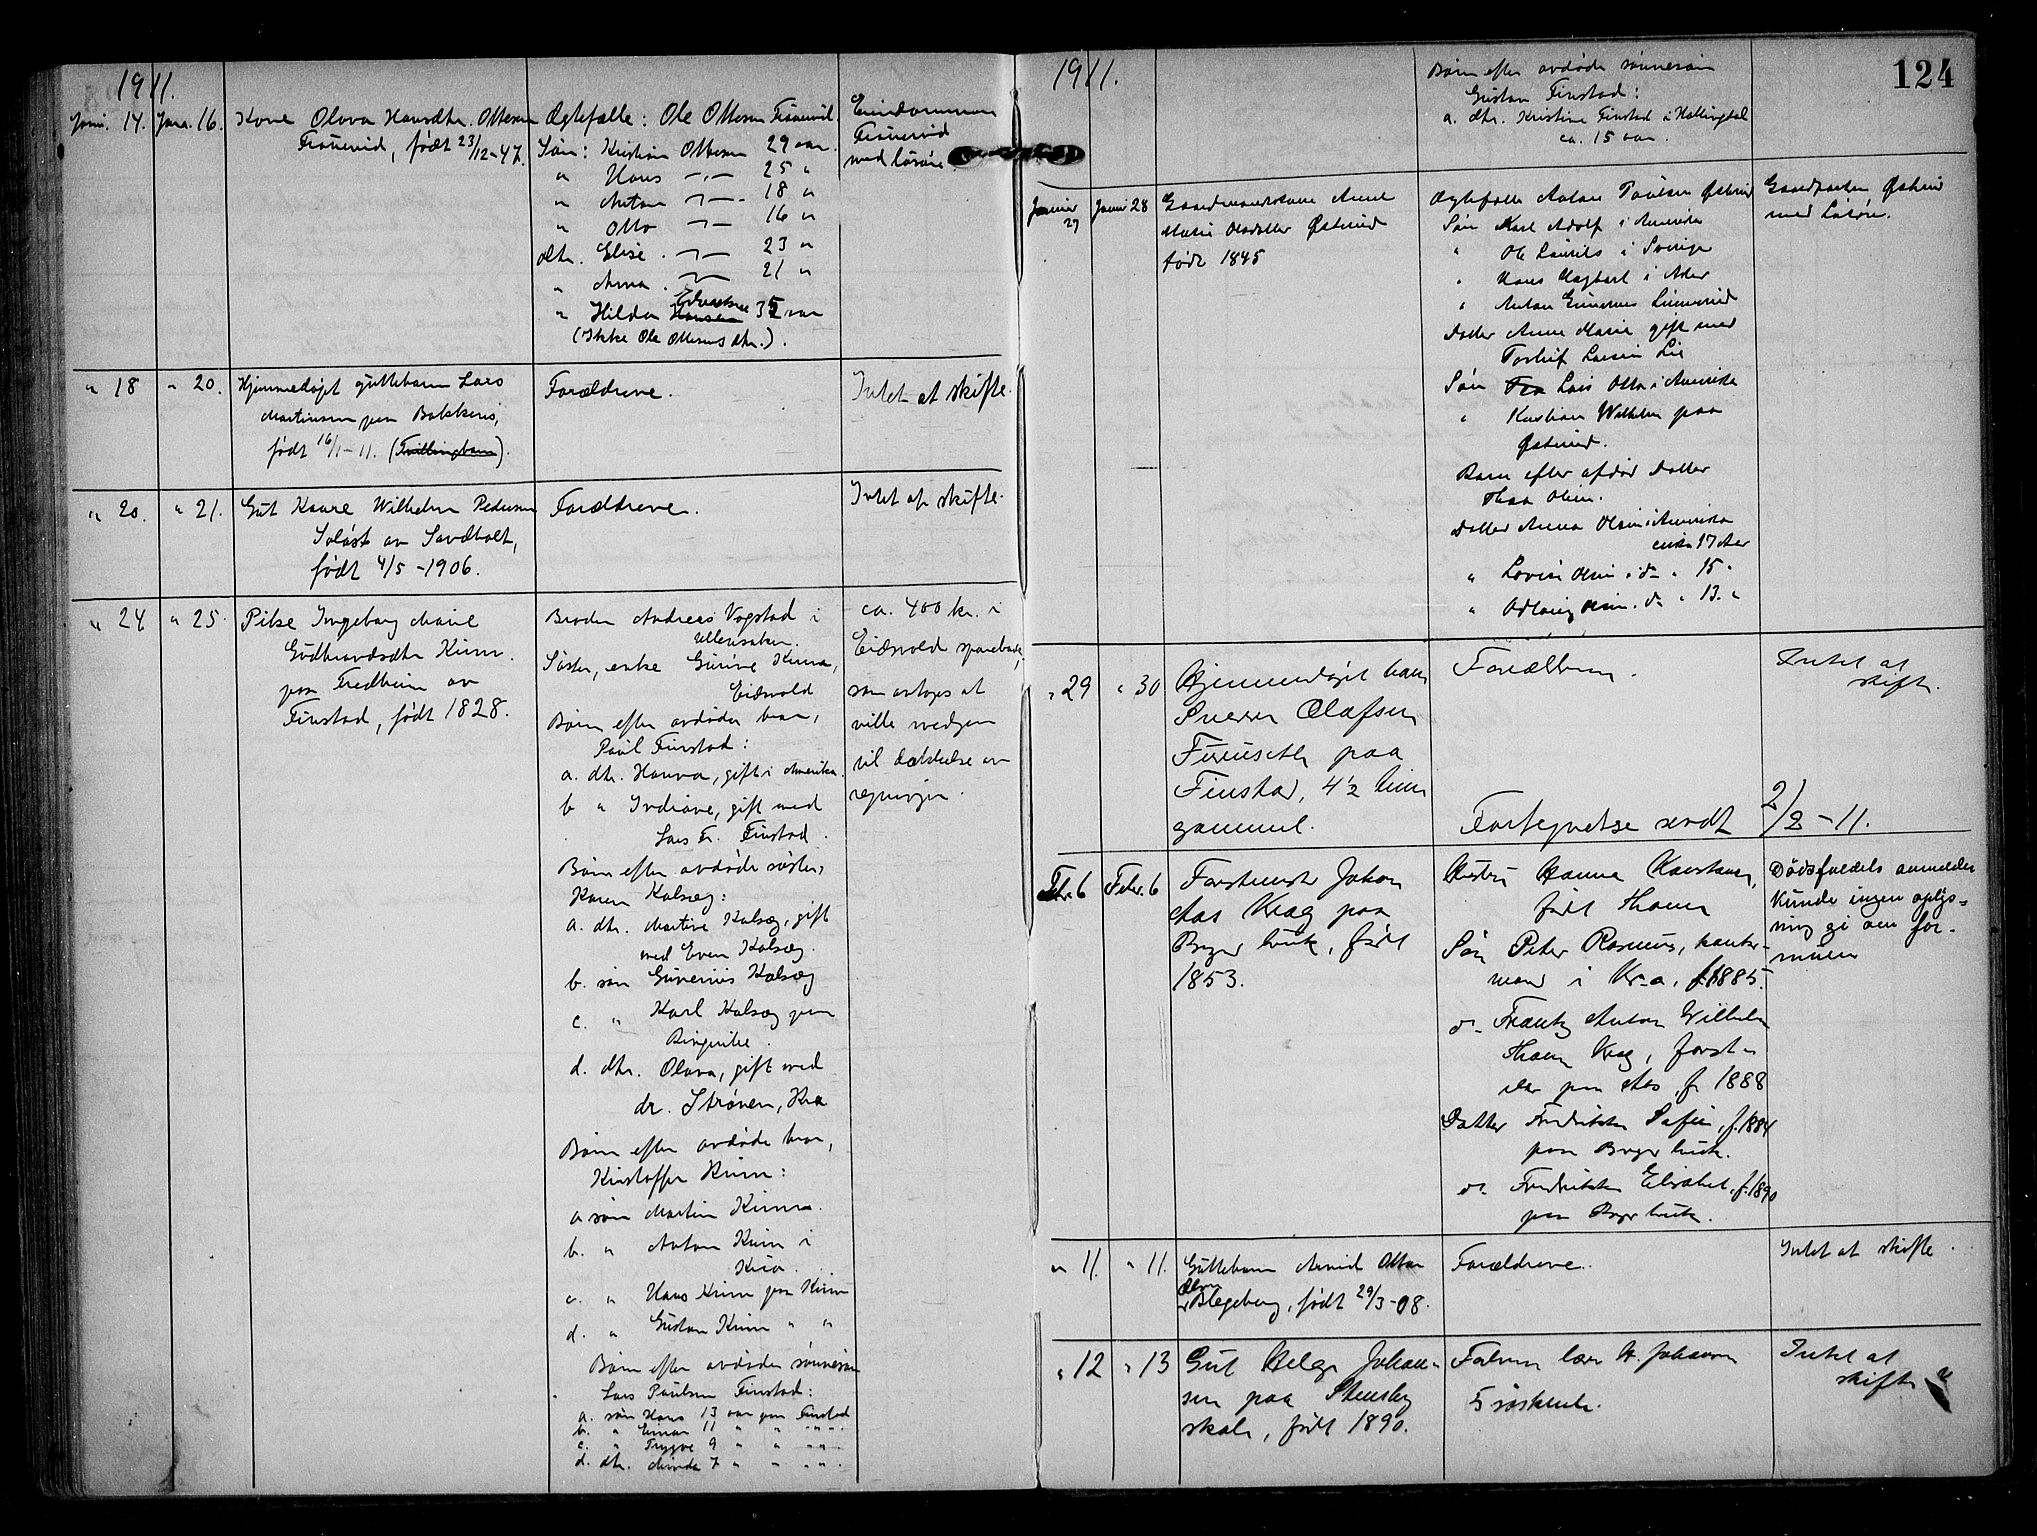 1911.
Janr. 14. Janr. 16. Kone Olava Hansdtr. Ottesen
født 23/12-47.
Ægtefælle: Ole Ottesen
Søn: Kristian Ottesen 29 aar.
" Hans -"- 25 "
" Anton -"- 18 "
" Otto -"- 16 "
dtr. Elise -"- 23 "
" Anna -"- 21 "
" Hilda Hansen 35 aar
(Ikke Ole Ottesens dtr.).
Eiendommen
med løsøre.
" 18 " 20. Hjemmedøpt guttebarn Lars
Martinsen paa
født 16/1-11. (Tvillingbarn).
Forældrene.
Intet at skifte.
" 20. " 21. Gut Kaare Wilhelm Pedersen
av Sandholt,
født 4/5-1906.
Forældrene.
Intet at skifte.
" 24 " 25. Pike Ingeborg Marie
Gudbrandsdtr Kinn
paa Fredheim av
Finstad, født 1828.
Broder Andreas Vogstad i
Ullensaker.
Søster, enke Gurine Kinn,
Eidsvold
Børn efter avdøde bror,
Paul Finstad:
a. dtr. Hanna, gift i Amerika.
b " Indiane, gift med
Lars Fr. Finstad.
Børn efter avdøde søster,
Karen Kolsæg:
a. dtr. Martine Kolsæg, gift
med Even Kolsæg.
b. søn Gunerius Kolsæg
c. " Karl Kolsæg paa
d. dtr. Olava, gift med
dr. Strøven, Kra
Børn efter avdøde bror,
Kristoffer Kinn:
a søn Martin Kinn.
b. " Anton Kinn i
Kra.
c. " Hans Kinn paa Kinn
d. " Gustav Kinn " "
Børn efter avdøde sønnesøn
Lars Paulsen Finstad:
a. søn Hans 13 aar paa Finstad
b. " Einar 11 " " -"-
c. " Trygve 9 " " -"-
d. dtr. Minda 7 " " -"-
ca. 400 kr. i
Eidsvold sparebank,
som antages at
ville medgaa
til dækkelse av
regninger.
1911.
124
Børn efter avdøde sønnesøn
Gustav Finstad:
a. dtr. Kristine Finstad i Hallingdal
ca. 15 aar.
Januar 27 Januar 28 Gaardmandskone Anne
Marie Olsdatter Østerud
født 1845
Ægtefælle Anton Paulsen Østerud
Søn Karl Adolf i Amerika
" Ole Laurits i Sverige
" Hans Hagbart i
" Anton
Datter Anne Marie gift med
Torleif Larsen Lie
Søn Lars Otto i Amerika
" Kristian Wilhelm paa
Østerud.
Barn efter afdød Datter
Thea Olsen.
Datter Anna Olsen i Amerika
cirka 17 Aar
" Lovise Olsen i do " 15 "
" Olsen. do " 13. "
Gaardparten Østerud
med Løsøre.
" 29 " 30 Hjemmedøpt barn
Sverre Olafsen
Furuseth paa
Finstad, 4½ time
gammel.
Forældrene.
Intet at
skifte.
Fortegnelse sendt 2/2-11.
Febr. 6 Febr. 6 Forstmester Johan
Aas Krag paa
bruk, født
1853.
Hustru Hanna
født
Søn Peter Rasmus, kontor-
mand i Kr.a, f. 1885.
do. Frantz Anton Wilhelm
Krag, forst-
paa Aas, f. 1888
Datter Fredrikke Sofie, f. 1884
paa bruk.
do. Fredrikke Elisabet, f. 1890
paa bruk.
Dødsfaldets anmelder
kunde ingen oplys-
ning gi om for-
muen
" 11. " 11. Guttebarn Arvid Otto
Olsen
Blegeberg, født 29/3-08.
Forældrene.
Intet at skifte.
" 12 " 13 Gut Helge Johan-
sen paa Stensby
skole, født 1890.
Faren lærer H. Johansen
5 søskende.
Intet at
skifte